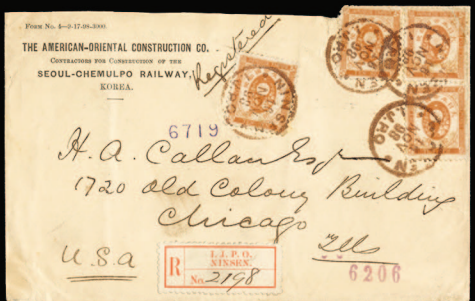 Form No. 4-3-17-98-3000.
THE AMERICAN-ORIENTAL CONSTRUCTION CO.
CONTRACTORS FOR CONSTRUCTION OF THE
SEOUL-CHEMULPO RAILWAY,
KOREA.
Registered
6719
H. A. Callan Esq
1720 Old Colony Building
Chicago
Ills
U.S.A
R
I. J. P. O.
NINSEN.
No. 2198
6206